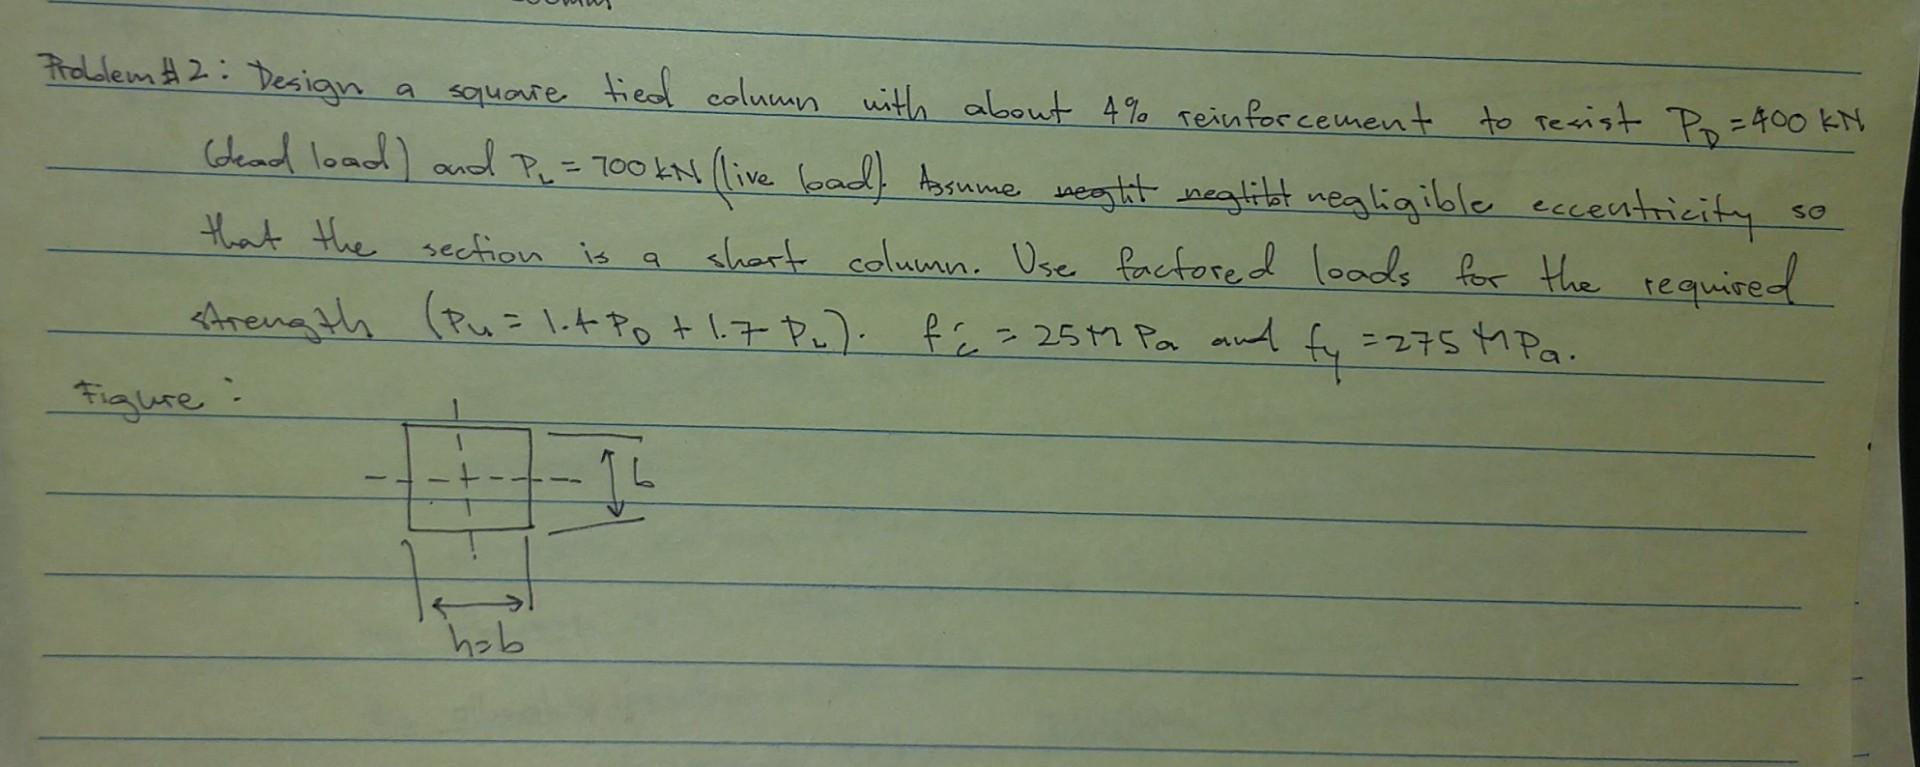 Problem #2: Design a square tied column with about 4% reinforcement to resist P_D = 400 kN
(dead load) and P_L = 700 kN (live load). Assume neglit neglibt negligible eccentricity so
that the section is a short column. Use factored loads for the required
strength (Pu = 1.4 P_D + 1.7 P_L). f'c = 25 MPa and fy = 275 MPa.
Figure:
b
h=b